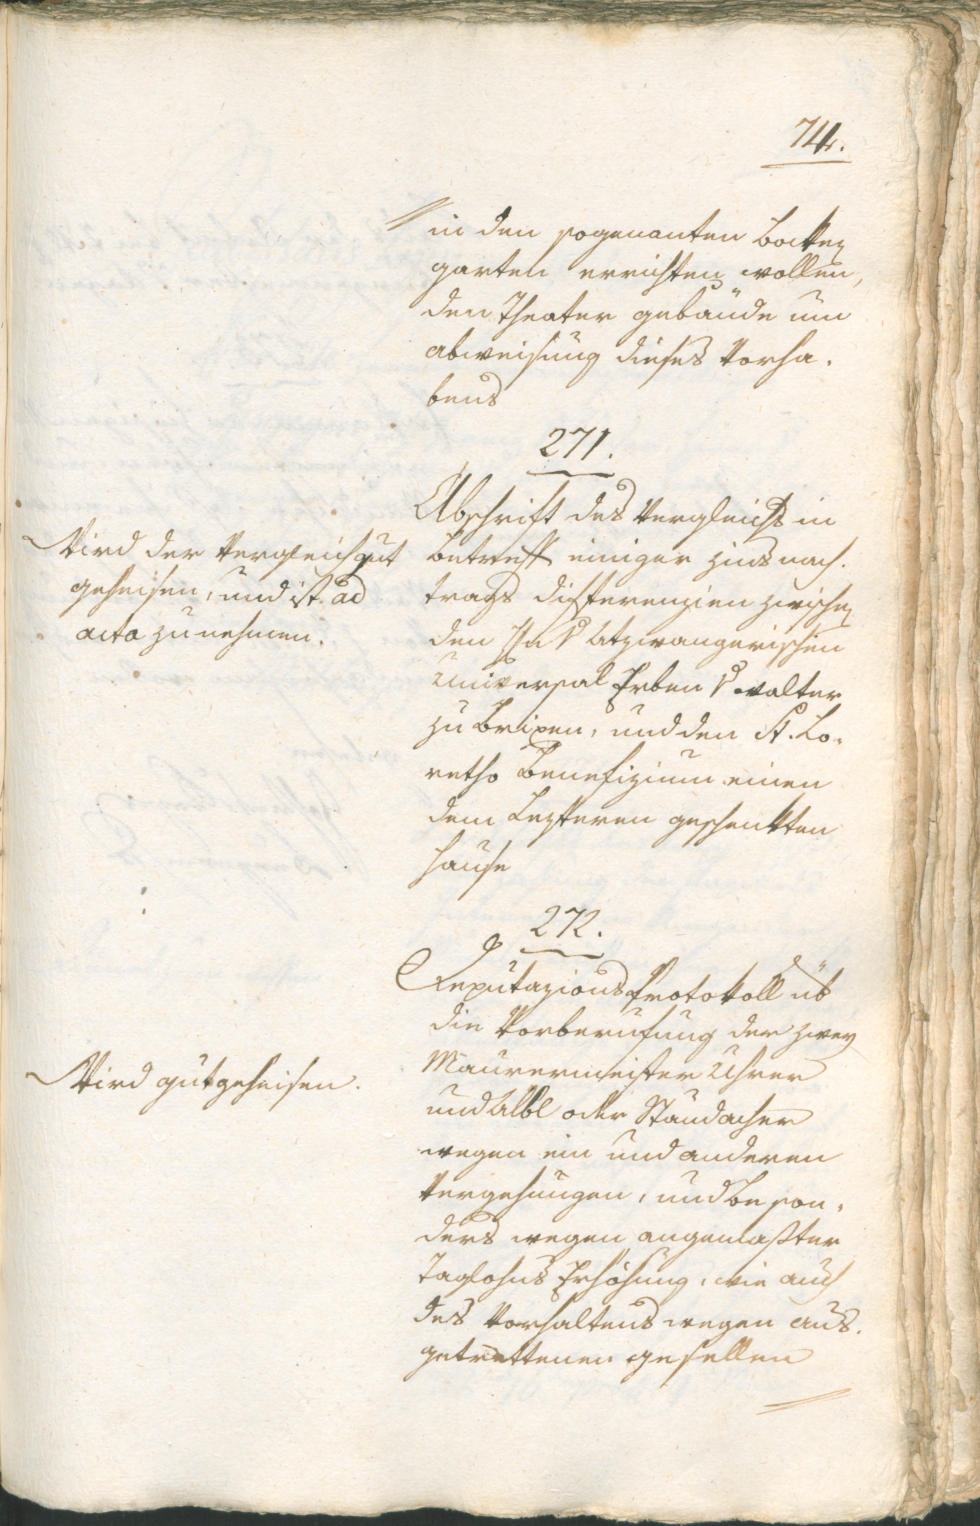 74.
in den sogenanten Bocken
garten errichten wollen,
den Theater gebäude um
abweisung dieses Vorha-
bens
271.
Abschrift des Vergleichs in
betreff einiger Zinsnach-
trags differenzien zwischen
den Atzwangerischen
Universal Erben v Walter
zu Brixen, und den St. Lo-
retho Benefizium einen
dem Lezteren geschenkten
Hause
Wird der Vergleich gut
geheisen, und ist ad
acta zu nehmen.
272.
Deputazions Protokoll üb
die Vorberufung der zwey
Maurermeister Uhrer
und Albl oder Staudacher
wegen ein und anderen
Vergehungen, und beson-
ders wegen angemaßter
Taglohns Erhöhung, wie auch
des Verhaltens wegen aus-
getrettenen gesellen
Wird gutgeheisen.